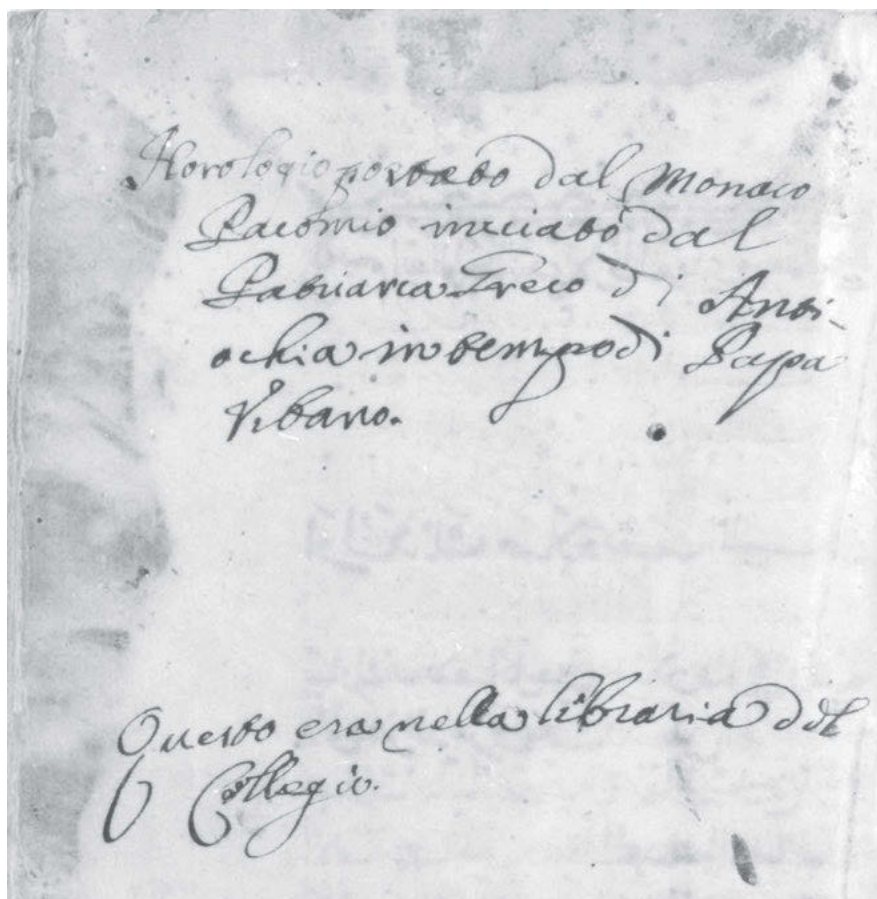 Horologio portato dal Monaco
Pacomio inuiato dal
Patriarca Greco di Anti-
ochia in tempo di Papa
Vrbano.
Questo era nella libraria del
Collegio.